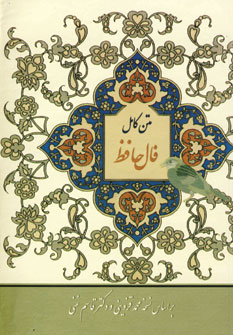 متن کامل
فال حافظ
بر اساس نسخه محمد قزوینی و دکتر قاسم غنی